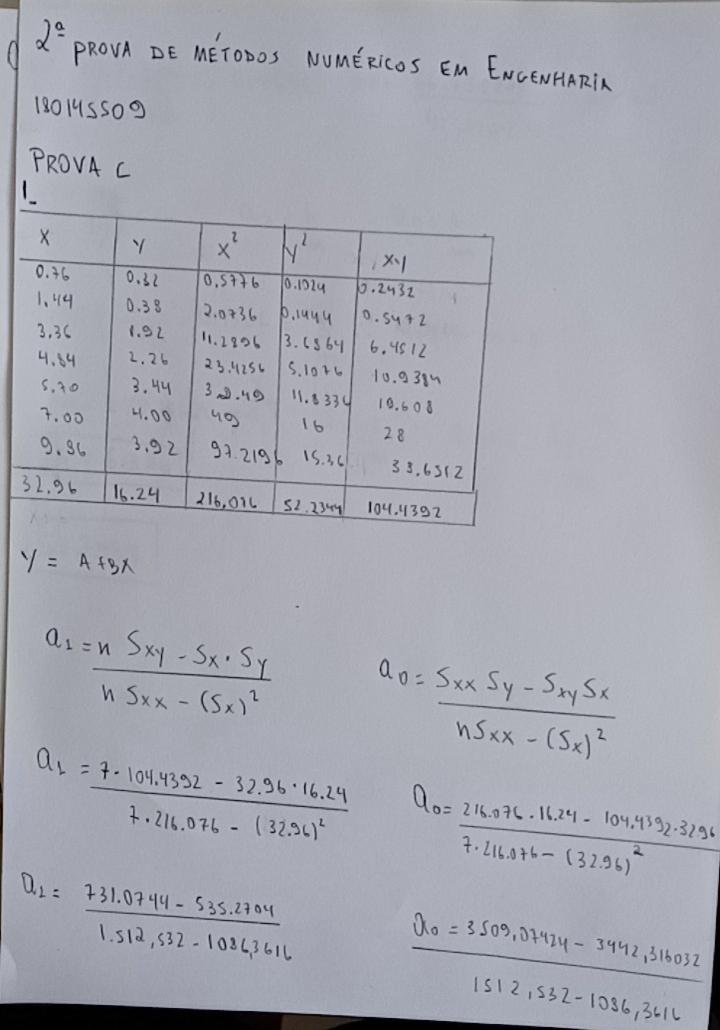 2ª PROVA DE MÉTODOS NUMÉRICOS EM ENGENHARIA
180145509
PROVA C
1_
X Y X² Y² X·Y
0.76 0.32 0.5776 0.1024 0.2432
1.44 0.38 2.0736 0.1444 0.5472
3.36 1.92 11.2896 3.6864 6.4512
4.84 2.26 23.4256 5.1076 10.9384
5.70 3.44 32.49 11.8336 19.608
7.00 4.00 49 16 28
9.86 3.92 97.2196 15.36 38.6512
32.96 16.24 216,076 52.2344 104.4392
Y = A+BX
a₁ = n Sxy - Sx · Sy / n Sxx - (Sx)²
a₀ = Sxx Sy - Sxy Sx / nSxx - (Sx)²
a₁ = 7·104.4392 - 32.96·16.24 / 7·216.076 - (32.96)²
a₀ = 216.076·16.24 - 104.4392·32.96 / 7·216.076 - (32.96)²
a₁ = 731.0744 - 535.2704 / 1.512,532 - 1086,3616
a₀ = 3509,07424 - 3442,316032 / 1512,532 - 1086,3616